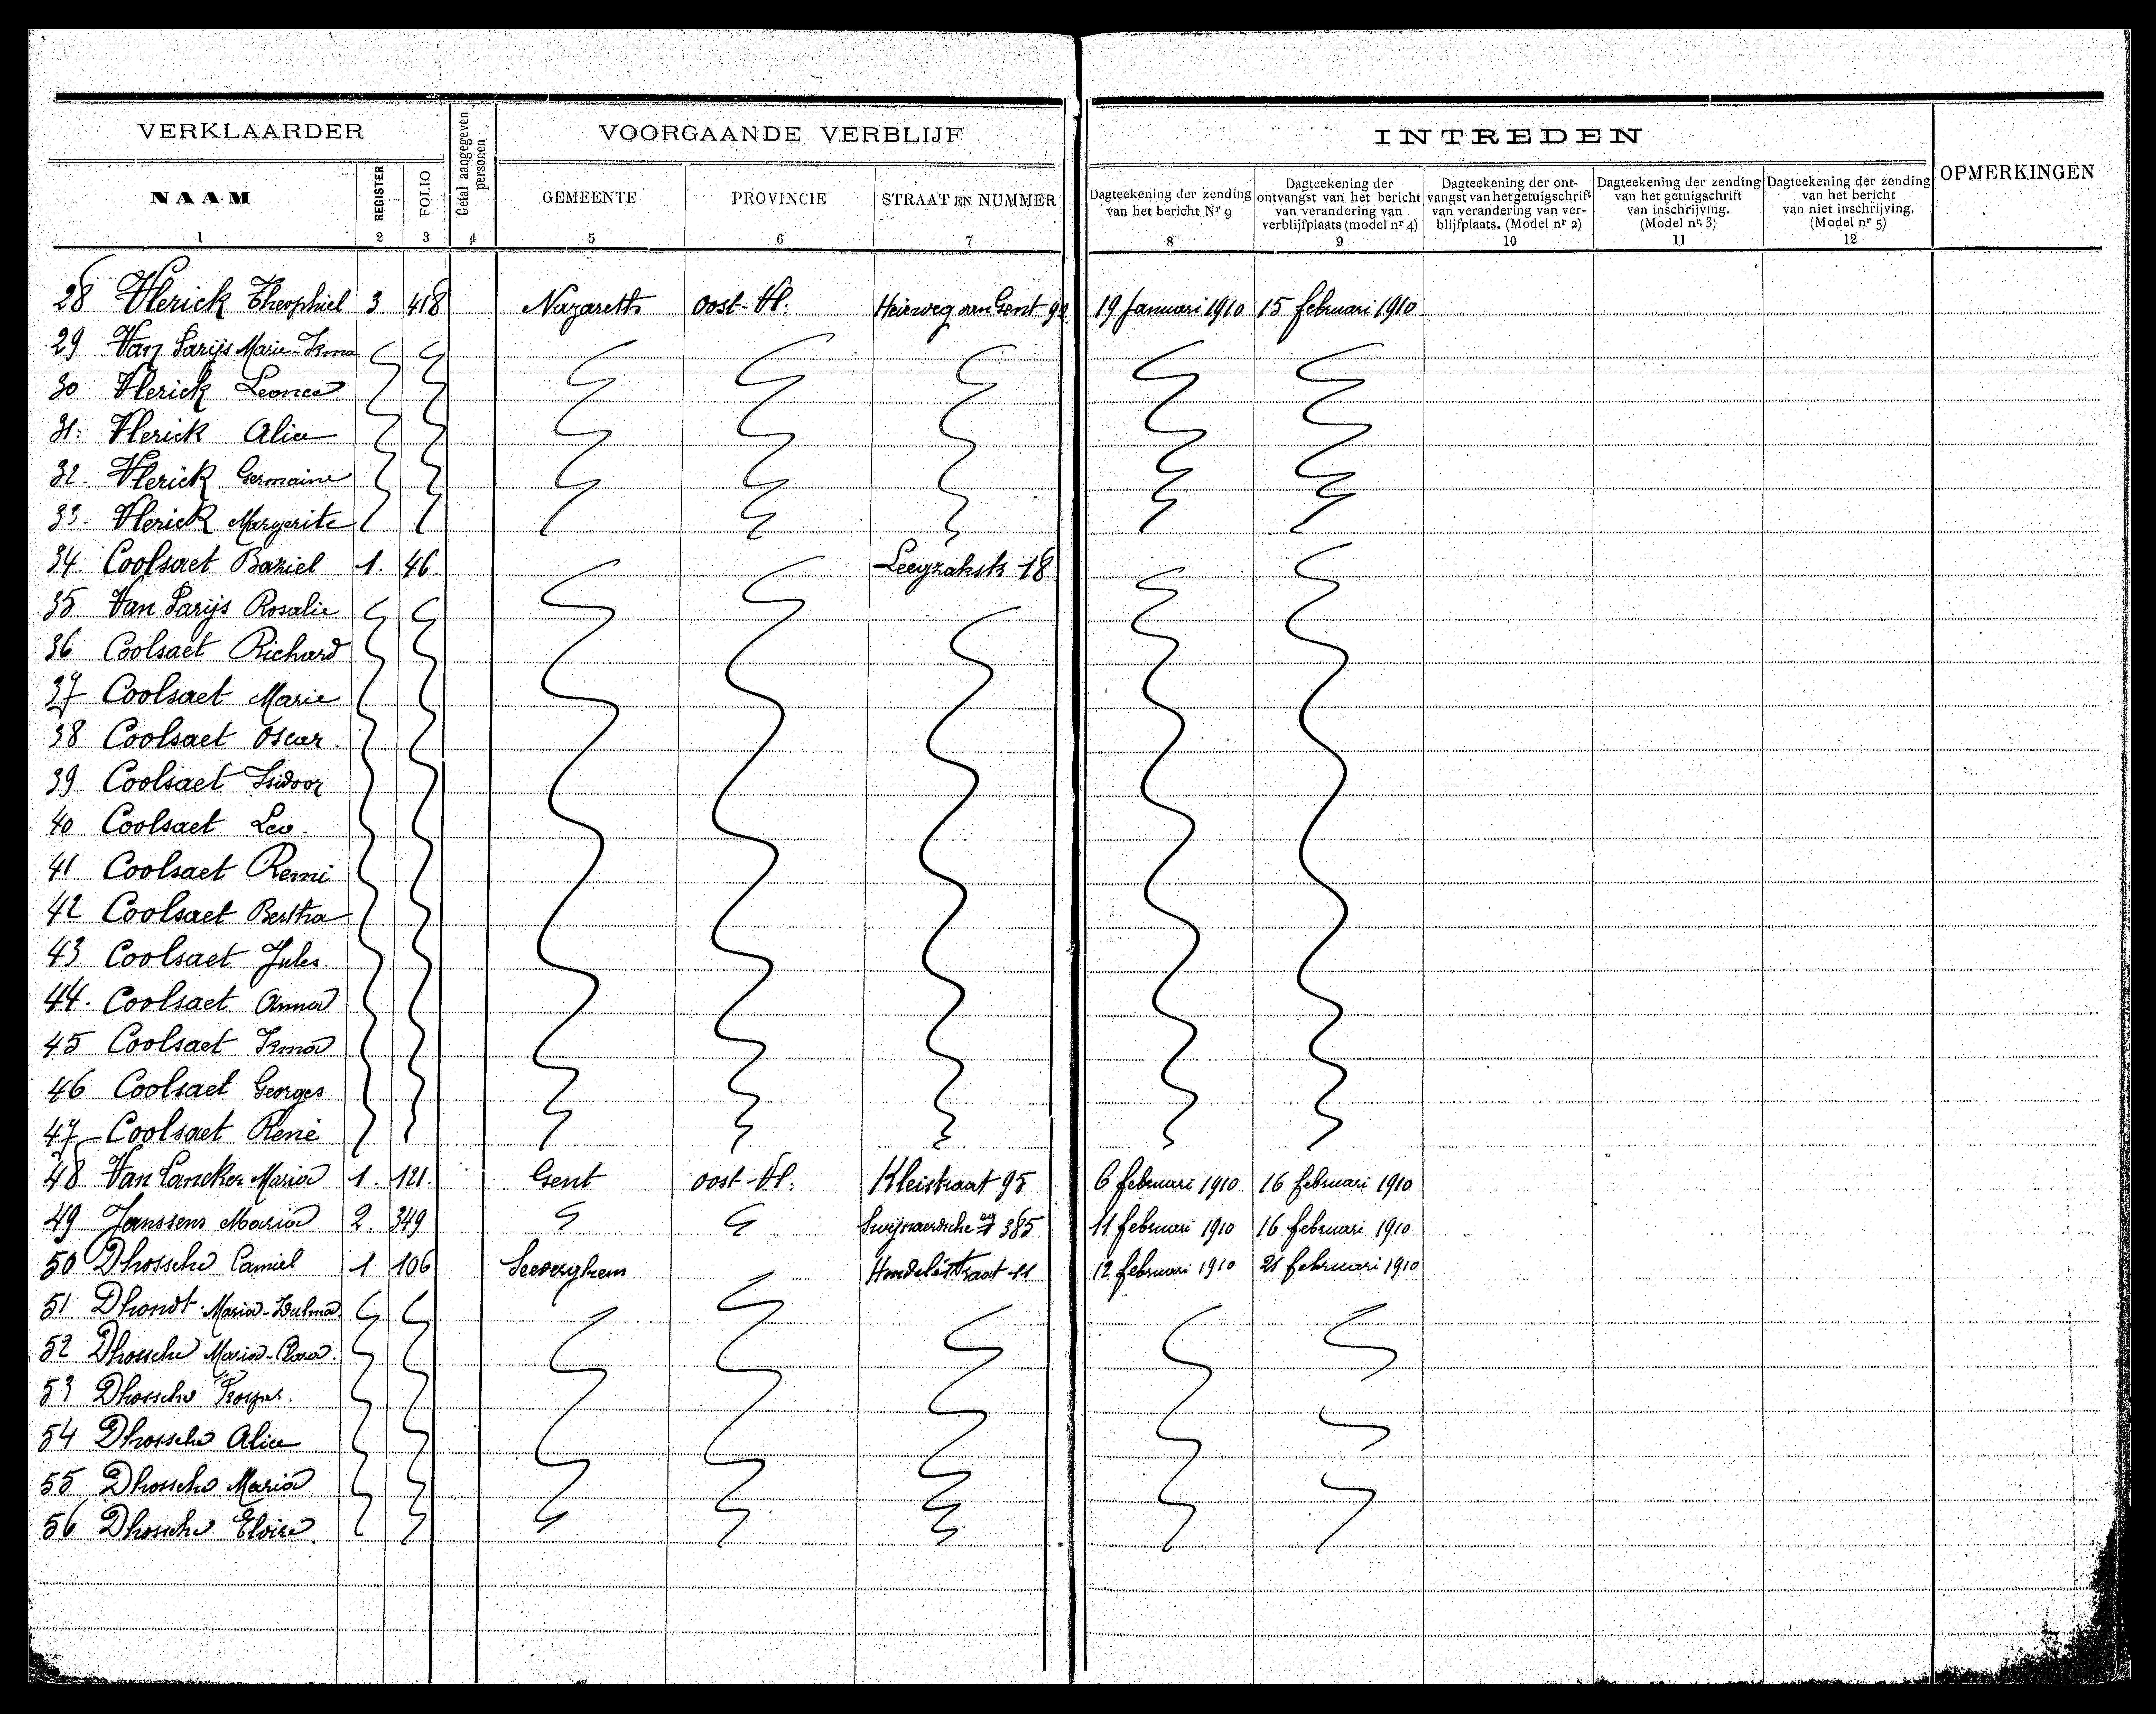 VERKLAARDER
Getal aangegeven personen
VOORGAANDE VERBLIJF
INTREDEN
OPMERKINGEN
NAAM REGISTER FOLIO GEMEENTE PROVINCIE STRAAT EN NUMMER
Dagteekening der zending van het bericht Nr 9
Dagteekening der ontvangst van het bericht van verandering van verblijfplaats (model nr 4)
Dagteekening der ontvangst van het getuigschrift van verandering van verblijfplaats. (Model nr 2)
Dagteekening der zending van het getuigschrift van inschrijving. (Model nr. 3)
Dagteekening der zending van het bericht van niet inschrijving. (Model nr 5)
1 2 3 4 5 6 7 8 9 10 11 12
28 Vlerick Theophiel 3 418 Nazareth Oost-Vl. Heirweg van Gent 92 19 Januari 1910 15 februari 1910
29 Van Parijs Marie-Irma
30 Vlerick Leonce
31. Vlerick Alice
32. Vlerick Germaine
33. Vlerick Margerite
34. Coolsaet Baziel 1. 46 18
35 Van Parijs Rosalie
36 Coolsaet Richard
37 Coolsaet Marie
38 Coolsaet Oscar.
39 Coolsaet Isidoor
40 Coolsaet Leo.
41 Coolsaet Remi
42 Coolsaet Bertha
43 Coolsaet Jules.
44. Coolsaet Anna
45 Coolsaet Irma
46 Coolsaet Georges
47 Coolsaet René
48 Van Lancker Maria 1. 121. Gent oost-Vl. Kleistraat 95 6 februari 1910 16 februari 1910
49 Janssens Maria 2. 349 Swijnaardsche 385 11 februari 1910 16 februari 1910
50 Dhossche Camiel 1 106 Seeverghem 11 12 februari 1910 21 februari 1910
51 Dhondt Maria-Zulma
52 Dhossche Maria
53 Dhossche Prosper.
54 Dhossche Alice
55 Dhossche Maria
56 Dhossche Eloise